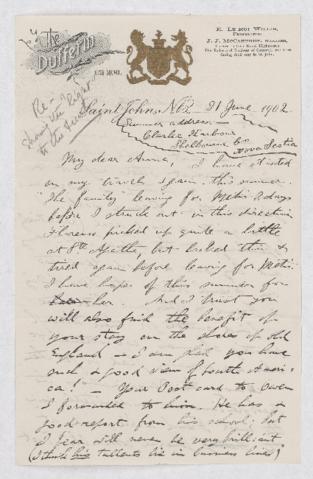 The
Dufferin
E. LeRoi Willis,
Proprietor.
J. J. McCaffrey, Manager.
Re-
Showing the Right
to the Feudal
Saint John, N.B. 21 June 1902
Summer address
Clarke Harbour
Shelburne Co
Nova Scotia
My dear Anna, I have started
on my travels again this summer
The family leaving for Metis 2 days
before I struck out in this direction
Florence picked up quite a little
at St Agathe, but looked thin &
tired again before leaving for Metis.
I have hopes of this summer for
her. And I trust you
will also find the benefit of
your stay on the shores of old
England – I am glad you have
such a good view of South Ameri-
ca! – Your Post card to Owen
I forwarded to him. He has a
good report from his school, but
I fear will never be very brilliant
(I think his talents lie in business lines)